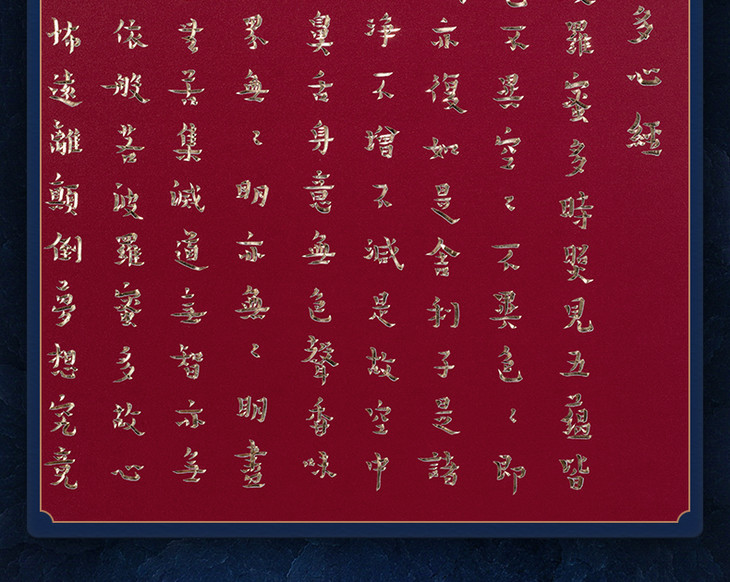 多心經
羅蜜多時照見五蘊皆
不異空〻不異色〻即
亦復如是舍利子是諸
淨不增不減是故空中
鼻舌身意無色聲香味
界無〻明亦無〻明盡
無苦集滅道無智亦無
依般若波羅蜜多故心
怖遠離顛倒夢想究竟